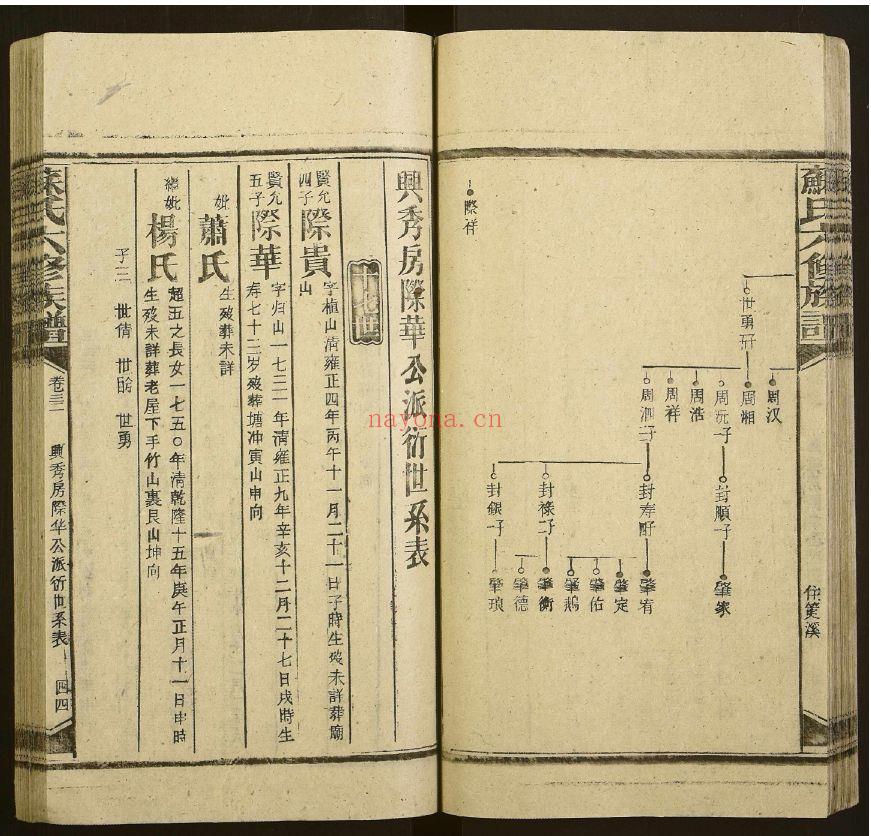 蘇氏六修族譜
住筻溪
周汉
世勇
周湘
周沅子一
封順子一
肇家
周浩
周祥
周泗子三
封寿子四
肇宥
肇定
肇佑
肇鵝
封祿子二
肇衡
肇德
封銀子一
肇琅
際祥
興秀房際華公派衍世系表
十七世
賢允四子 際貴 字植山清雍正四年丙午十一月二十一日子時生歿未詳葬廟山
賢允五子 際華 字归山一七三一年清雍正九年辛亥十二月二十七日戌時生
寿七十二岁歿葬塘冲寅山申向
妣 蕭氏 生歿葬未詳
繼妣 楊氏 超五之長女一七五〇年清乾隆十五年庚午正月十一日申時
生歿未詳葬老屋下手竹山裏艮山坤向
子三 世倩 世 世勇
蘇氏六修族譜
卷三二
興秀房際华公派衍世系表
四四
nayona.cn